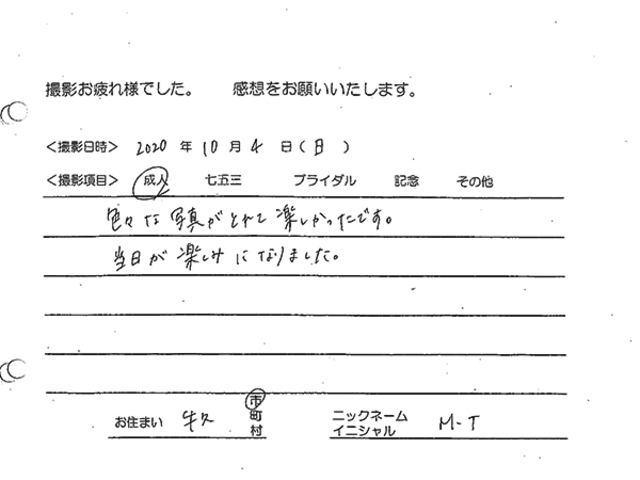 撮影お疲れ様でした。 感想をお願いいたします。
＜撮影日時＞ 2020 年 10 月 4 日（日）
＜撮影項目＞ 成人 七五三 ブライダル 記念 その他
色々な写真がとれて楽しかったです。
当日が楽しみになりました。
お住まい 牛久 市町村 ニックネーム イニシャル M-T